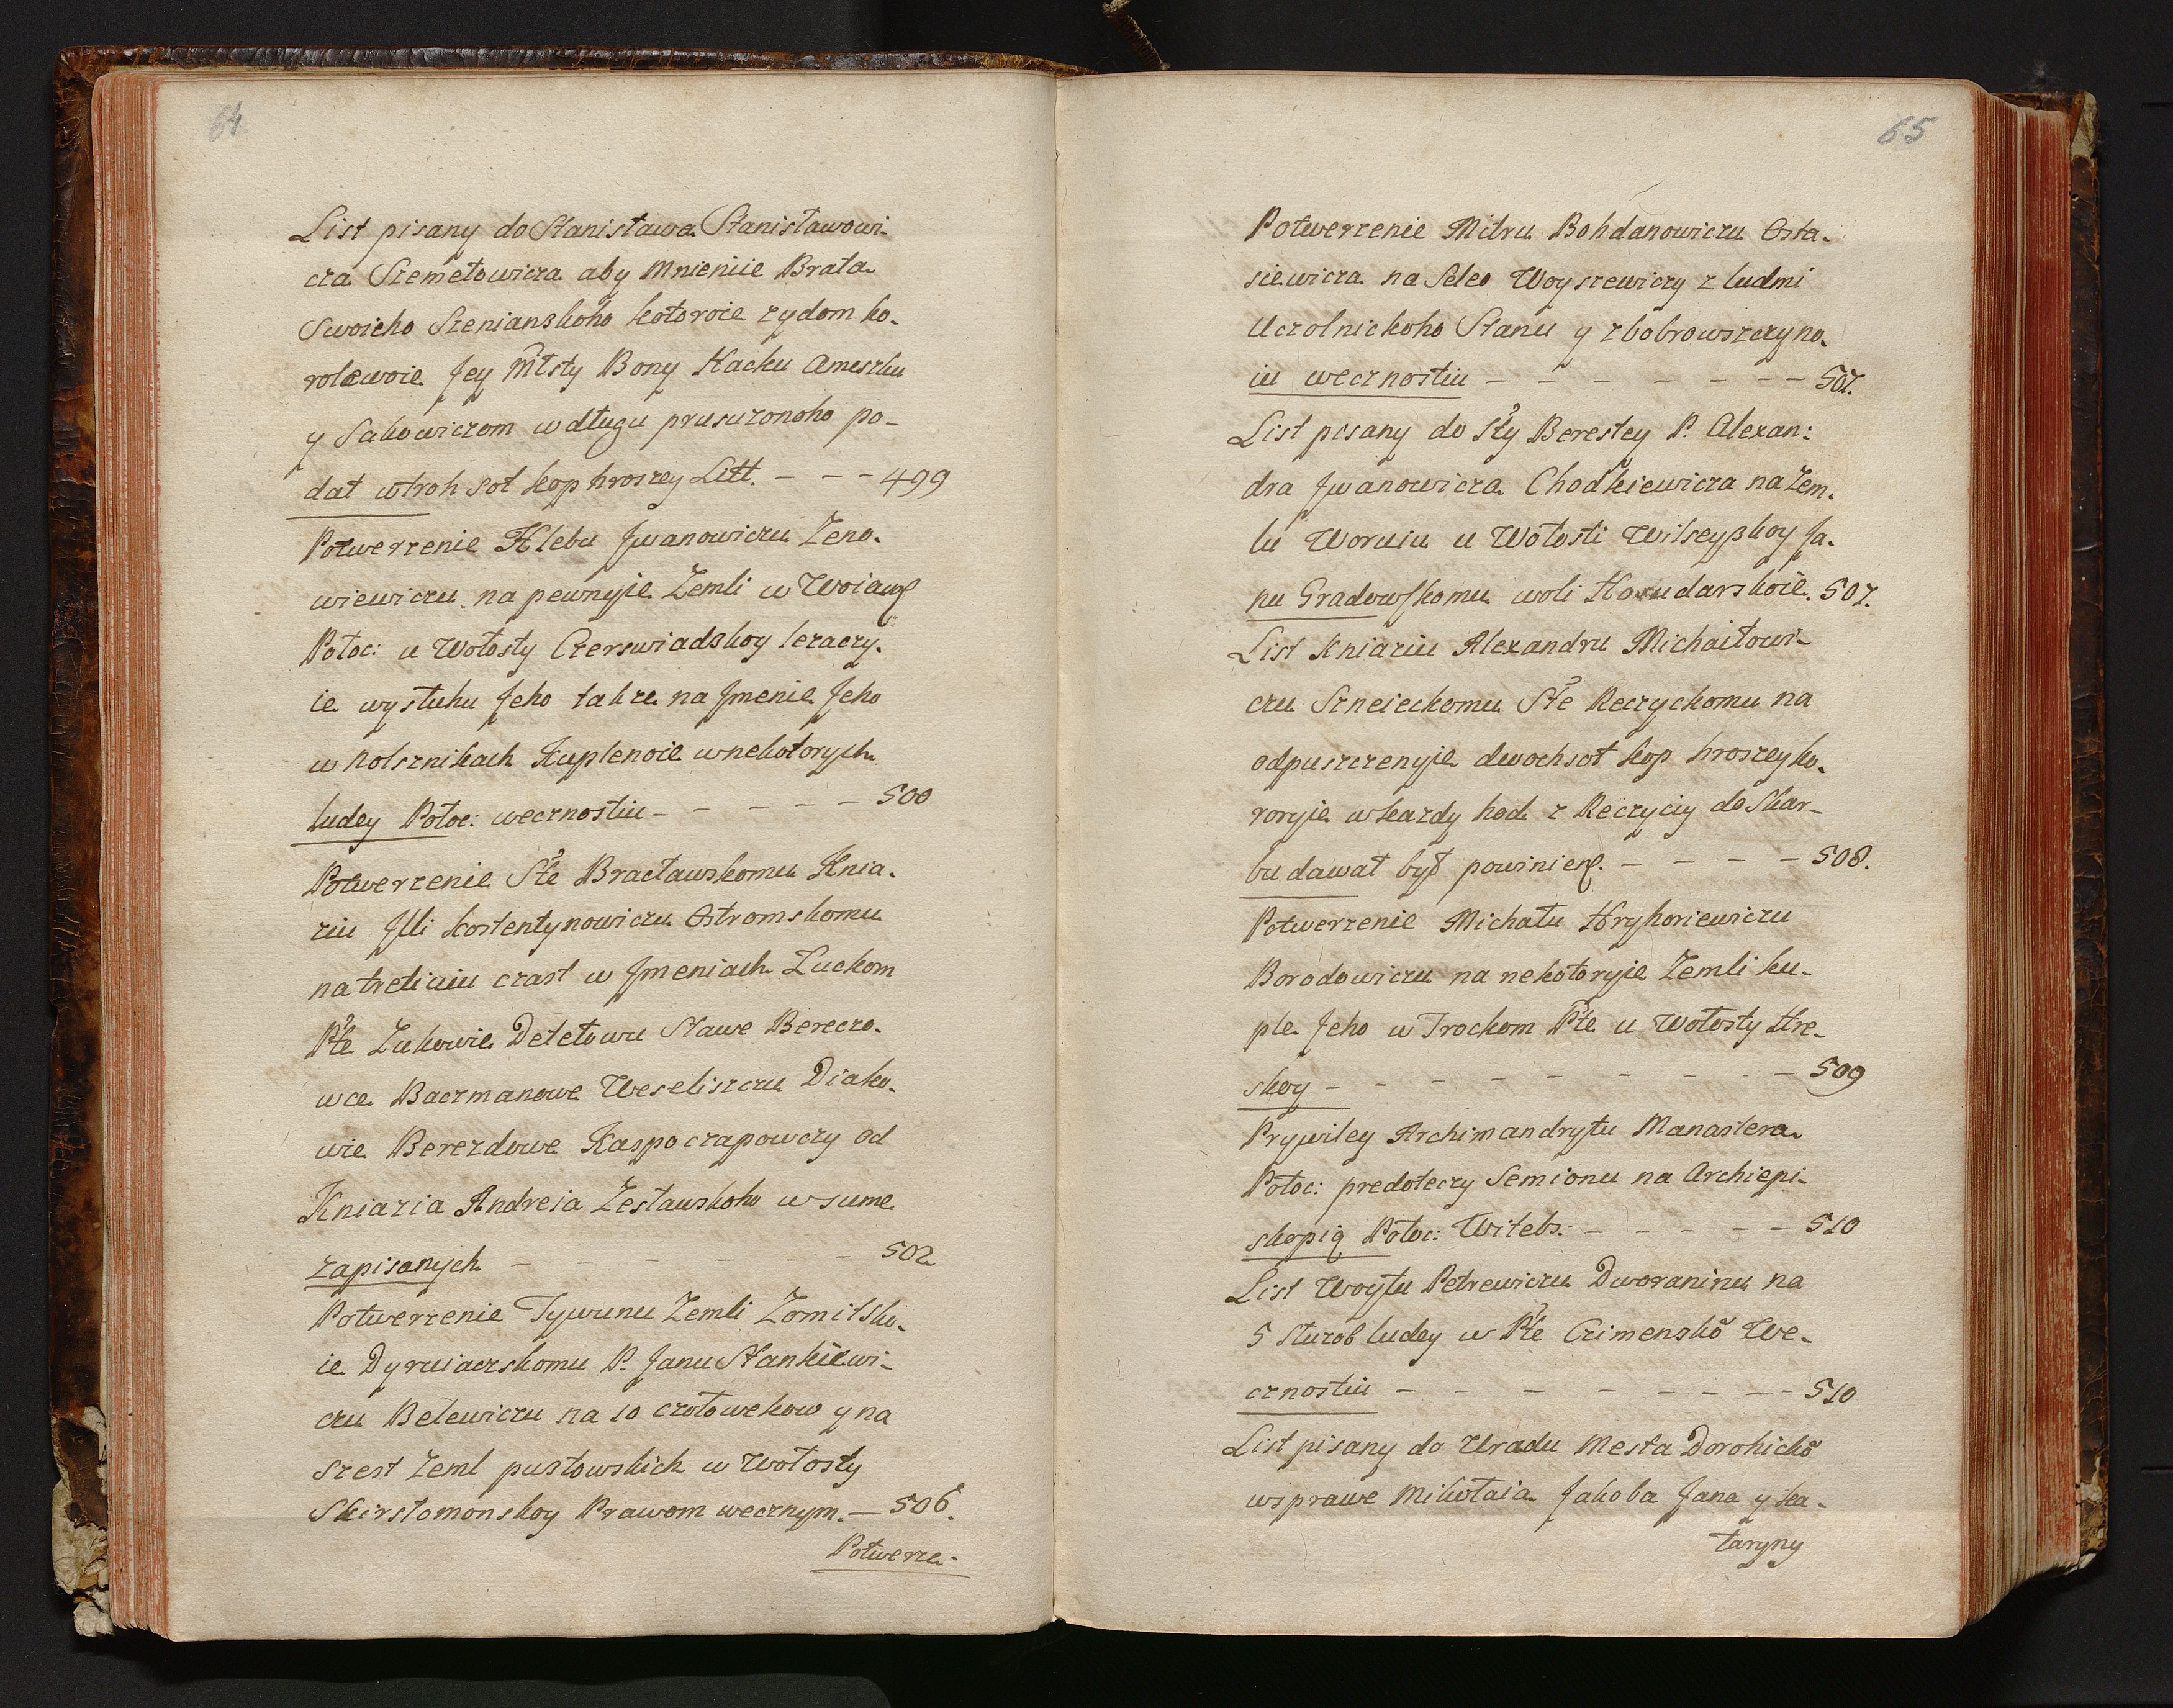 64
List pisany do Stanisława Stanisławowi-
cza Szemetowicza aby Mnieniie Brata
Swoieho Szenianskoho kotoroie zydom ko-
rolewoie Jey Młsty Bony Hacku Ameszku
y Sakowiczom w długu prusuzonoho po-
dat w troh sot kop hroszey Litt. - - - 499
Potwerzenie Hlebu Jwanowiczu Zeno-
wiewiczu na pewnyje Zemli w Woiew
Połoc: u Wołosty Czerswiadskoy lezaczy-
ie wysłuhu Jeho takze na Jmenie Jeho
w Kolsznikach Kuplenoie w nekotorych
ludey Połoc: wecznostiu - - - - - 500
Potwerzenie Stẽ Bracławskomu Knia-
ziu Jlli Kostentynowiczu Ostromskomu
na tretiuiu czast w Jmeniach Łuckom
Ptẽ Zukowie Detetowu Stawe Bereczo-
wce Baczmanowe Weseliszczu Diako-
wie Berezdowe Kaspoczapowczy od
Kniazia Andreia Zesławskoho w sume
zapisanych - - - - - - 502
Potwerzenie Tywunu Zemli Zomitski-
ie Dyrwiaczskomu P. Janu Stankiewi-
czu Belewiczu na 10 czołowekow y na
szest Zeml pustowskich w Wołosty
Skirstomonskoy Prawom wecznym. - 506.
Potwerze-
65
Potwerzenie Mitru Bohdanowiczu Osta-
siewicza na Seleo Woyszewiczy z ludmi
Uczolnickoho Stanu y z bobrowszczyno-
iu wecznostiu - - - - - - - 507.
List pisany do Sty Berestey P. Alexan:
dra Jwanowicza Chodkiewicza na Zem-
lu Woruiu u Wołosti Wilseyskoy Ja-
nu Gradowskomu woli Hosudarskoie. 507.
List Kniaziu Alexandru Michaiłowi-
czu Szneieckomu Stẽ Reczyckomu na
odpuszczenyie dwochsot kop hroszey ko-
roryje w kazdy hod z Reczycy do Skar-
bu dawat był powinien. - - - - 508.
Potwerzenie Michału Hryhoriewiczu
Borodowiczu na nekotoryje Zemli ku-
ple Jeho w Trockom Ptẽ u Wołosty Hre-
skoy - - - - - - - - - 509
Prywiley Archimandrytu Manastera
Połoc: predoteczy Semionu na Archiepi-
skopią Połoc: Witebs: - - - - - 510
List Woytu Petrewiczu Dworaninu na
5 sluzob ludey w Ptẽ Crimenskõ We-
cznostiu - - - - - - - 510
List pisany do Uradu Mesta Dorohickõ
w sprawe Mikołaia Jakoba Jana y ka-
taryny